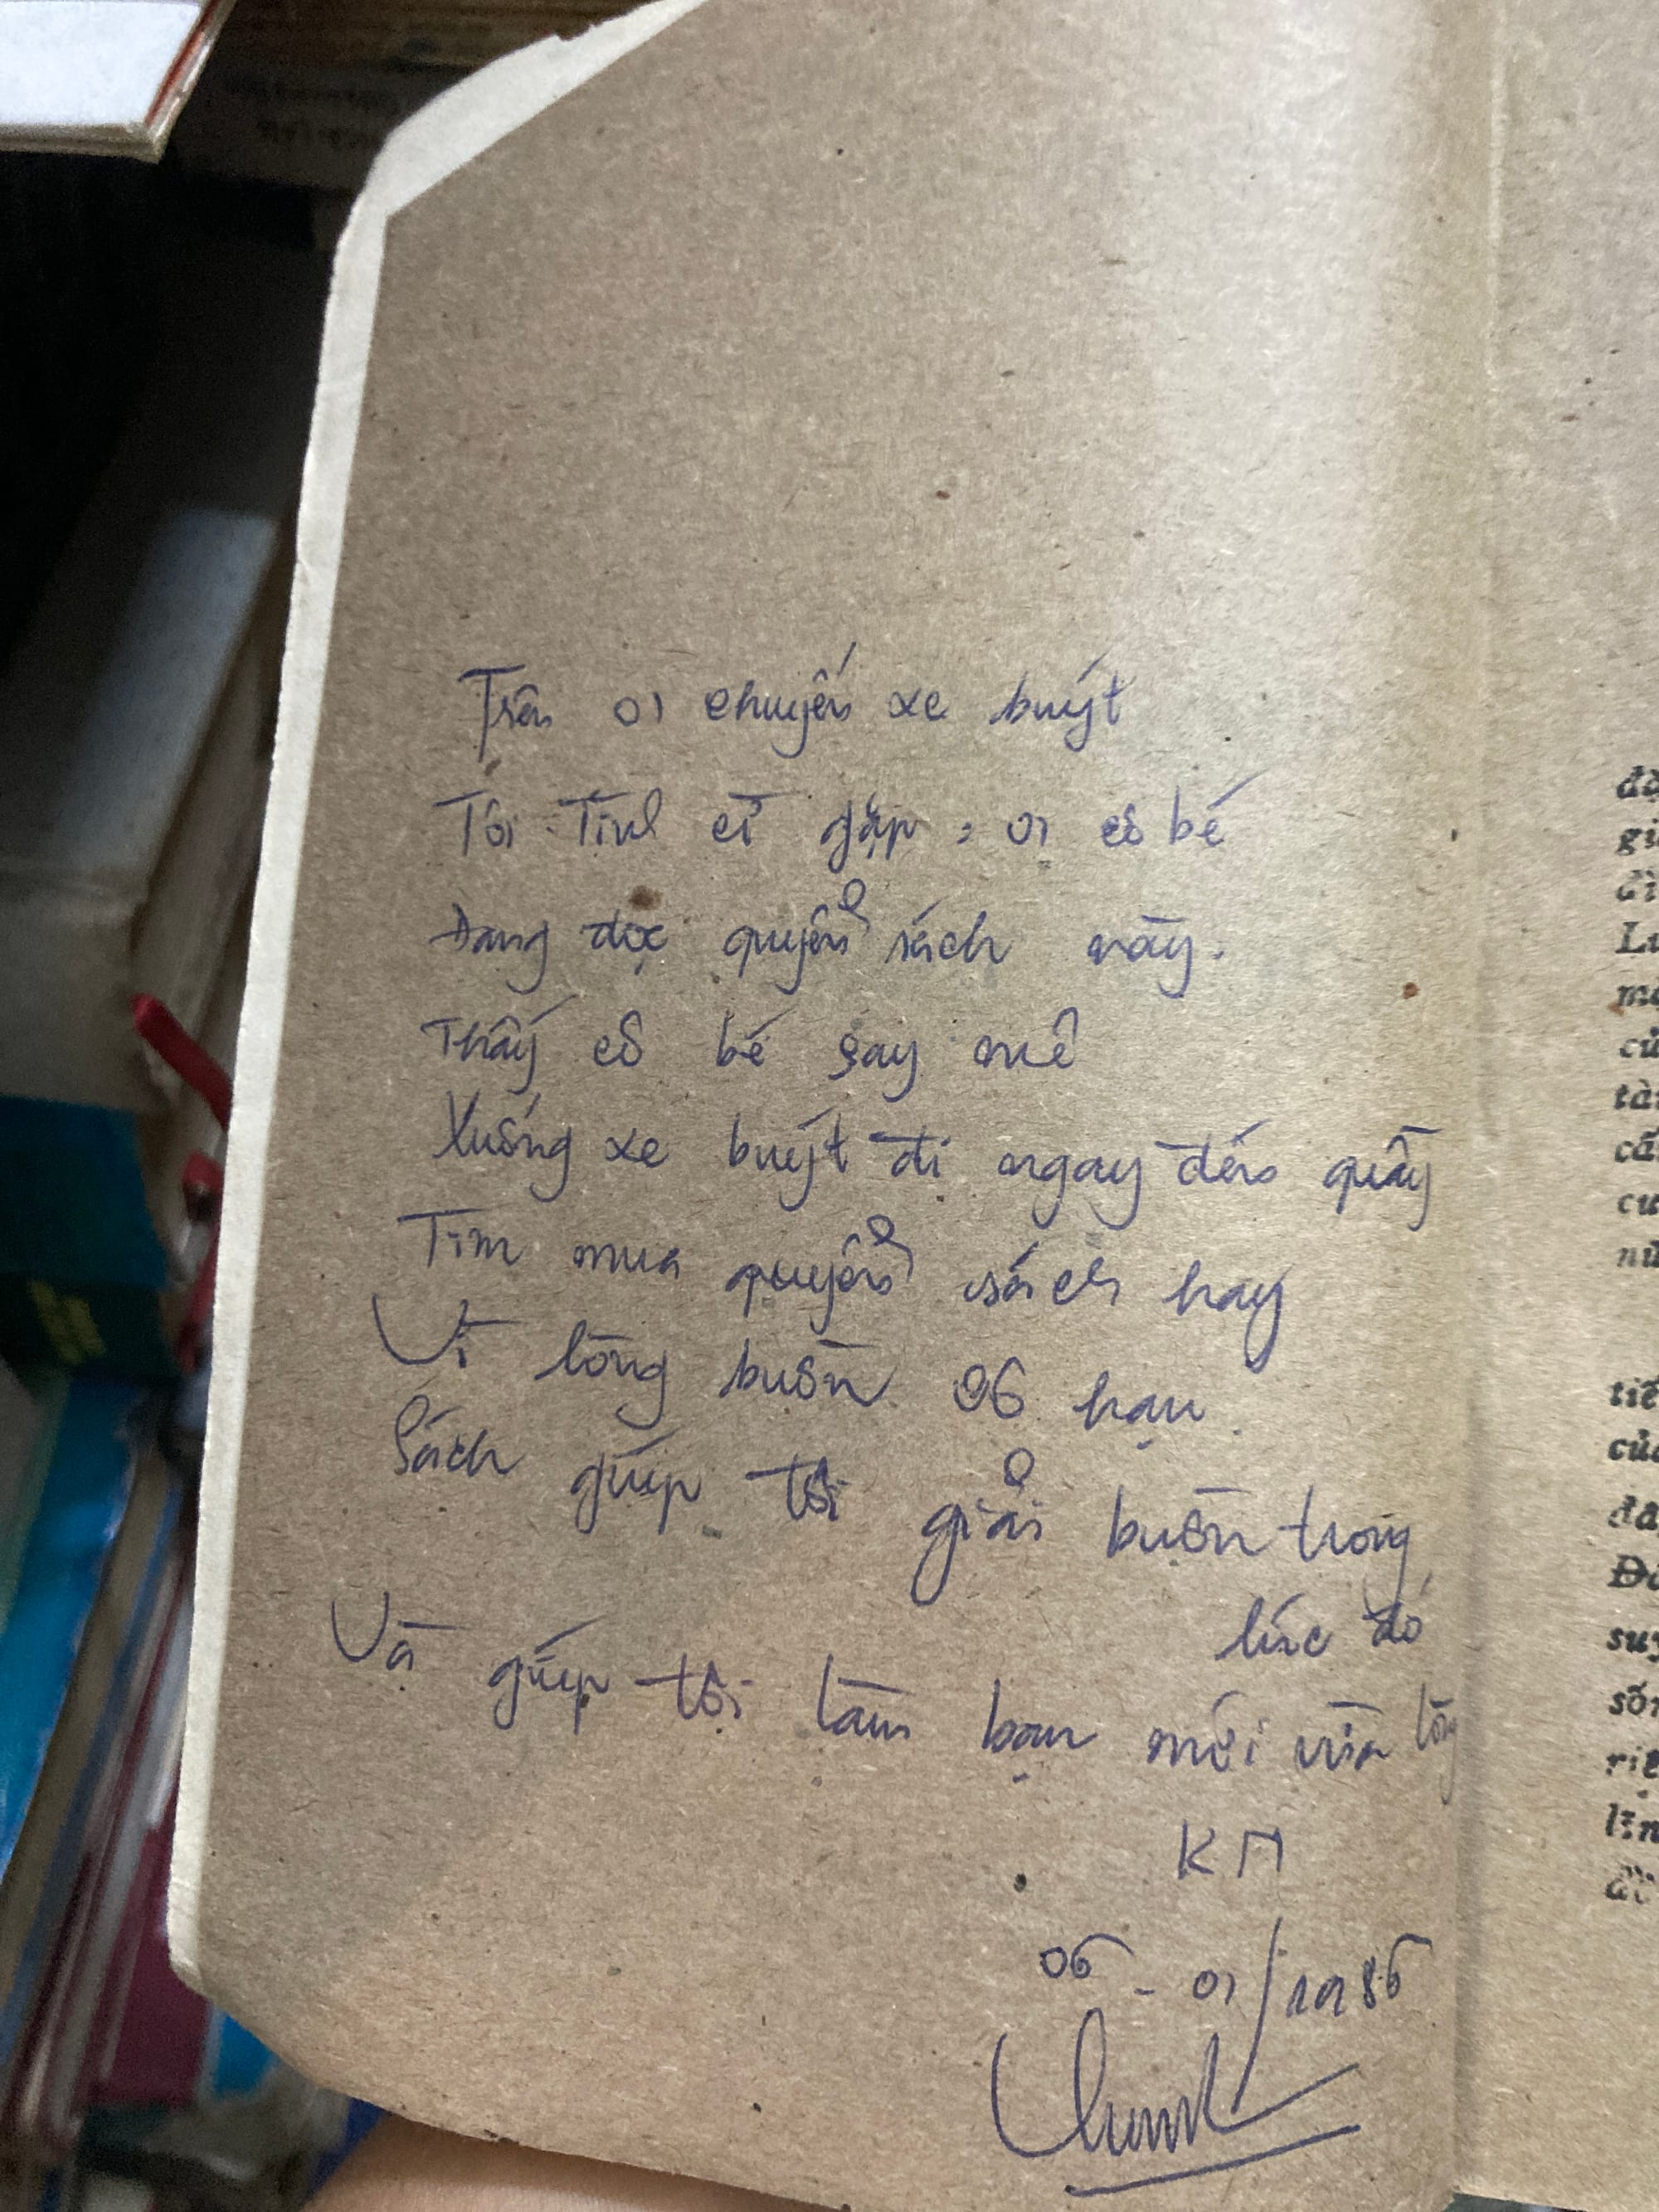 Trên 01 chuyến xe buýt
Tôi tình cờ gặp 01 cô bé
Đang đọc quyển sách này.
Thấy cô bé say mê
Xuống xe buýt đi ngay đến quầy
Tìm mua quyển sách hay
Vì lòng buồn vô hạn
Sách giúp tôi giải buồn trong
lúc đó
Và giúp tôi làm bạn mới vừa lòng
KM
06 - 01/1986
đọ
gi
đì
mộ
củ
tà
cấ
cu
tiế
của
đa
Đ
suy
số
riê
lĩn